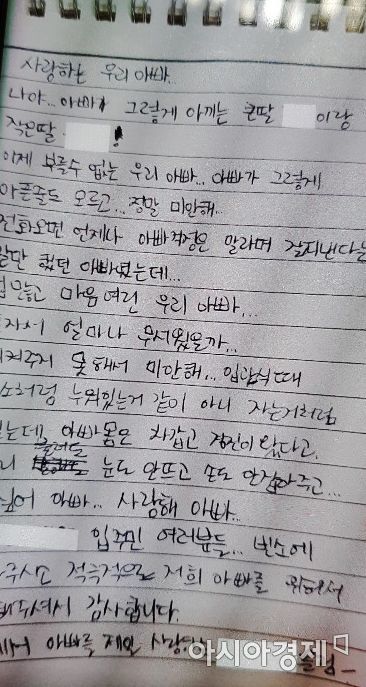 사랑하는 우리 아빠..
나야.. 아빠가 그렇게 아끼는 큰딸 이랑
작은딸 !
이제 부를수 없는 우리 아빠.. 아빠가 그렇게
아픈줄도 모르고... 정말 미안해..
전화오면 언제나 아빠걱정은 말라며 잘지낸다는
말만 했던 아빠였는데...
많고 마음여린 우리 아빠...
자서 얼마나 무서웠을까..
지켜주지 못해서 미안해... 입관식때
소처럼 누워있는거 같이 아니 자는거처럼
있는데 아빠몸은 차갑고
불러도 눈도 안뜨고 손도 안잡아주고...
싶어 아빠.. 사랑해 아빠..
입주민 여러분들.. 빈소에
주시고 적극적으로 저희 아빠를 위해서
해주셔서 감사합니다.
아빠를 제일 사랑
아시아경제